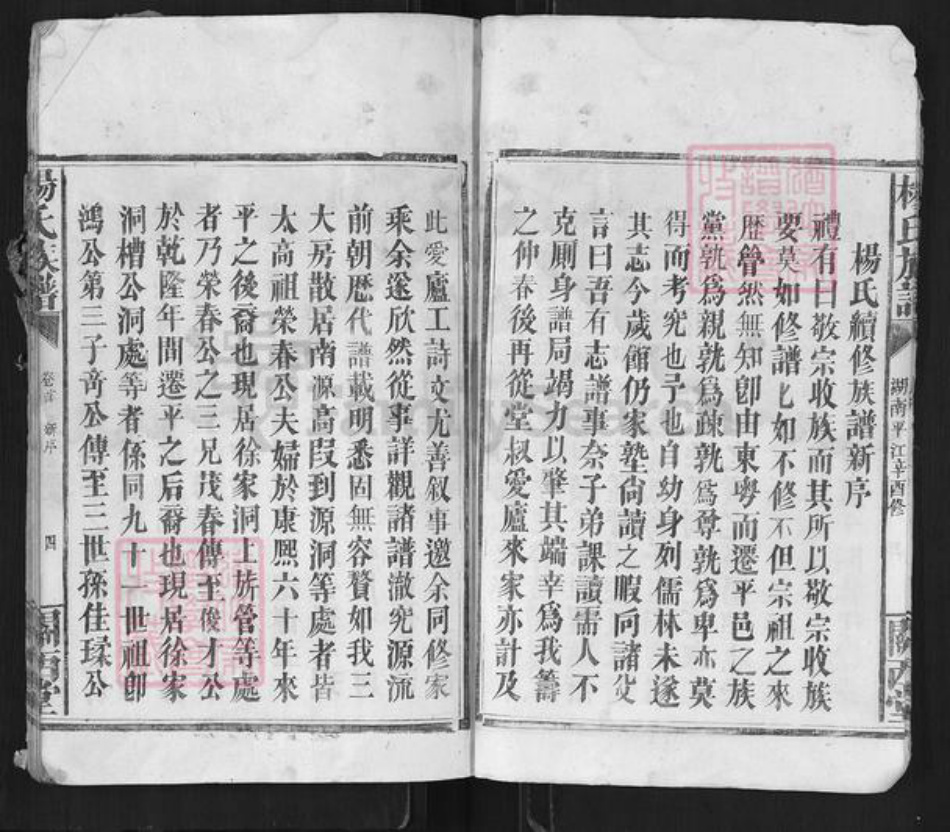 楊氏族譜
湖南平江辛酉修
楊氏續修族譜新序
禮有曰敬宗收族而其所以敬宗收族
要莫如修譜乜如不修不但宗祖之來
歷管然無知卽由東粵而遷平邑之族
黨孰爲親孰爲疎孰爲尊孰爲卑亦莫
得而考究也予也自幼身列儒林未遂
其志今歲館仍家塾尙讀之暇向諸父
言曰吾有志譜事奈子弟課讀需人不
克厠身譜局竭力以肇其端幸爲我籌
之仲春後再從堂叔愛廬來家亦計及
此愛廬工詩文尤善叙事邀余同修家
乘余遂欣然從事詳觀諸譜澈究源流
前朝歷代譜載明悉固無容贅如我三
大房散居南源高叚到源洞等處者皆
太高祖榮春公夫婦於康熙六十年來
平之後裔也現居徐家洞上族管等處
者乃榮春公之三兄茂春傳至俊才公
於乾隆年間遷平之后裔也現居徐家
洞槽公洞處等者係同九十一世祖卽
鴻公第三子啻公傳至三世孫佳瑈公
楊氏族譜
卷首 新序
四
關西堂